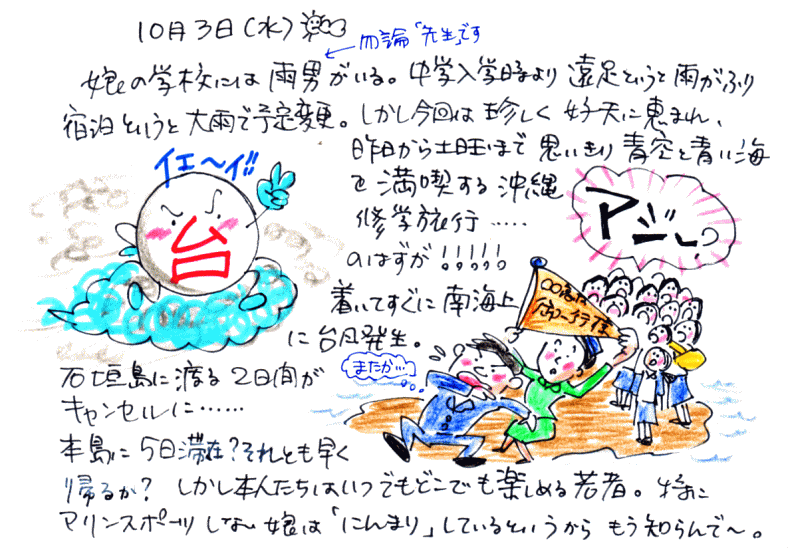 10月3日(水)
勿論「先生」です
娘の学校には雨男がいる。中学入学時より遠足というと雨がふり
宿泊というと大雨で予定変更。しかし今回は珍しく好天に恵まれ、
昨日から土曜まで思いきり青空と青い海
を満喫する沖縄
修学旅行.....
のはずが!!!!!!
着いてすぐに南海上
に台風発生。
イエ〜イ!!
台
アジャ〜っ
御一行様
またか…
石垣島に渡る2日間が
キャンセルに……
本島に5日滞在?それとも早く
帰るか? しかし本人たちはいつでもどこでも楽しめる若者。特に
マリンスポーツしない娘は「にんまり」しているというから もう知らんで〜。